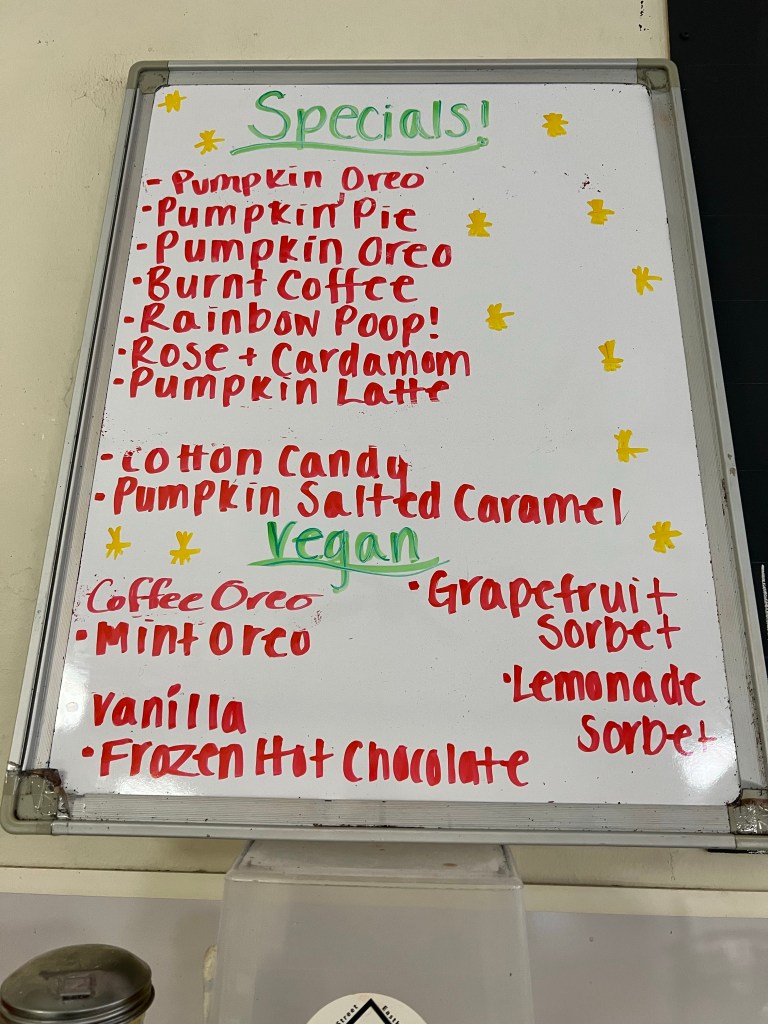 Specials!
- Pumpkin Oreo
· Pumpkin Pie
· Pumpkin Oreo
· Burnt Coffee
· Rainbow Poop!
· Rose + Cardamom
· Pumpkin Latte
· Cotton Candy
· Pumpkin Salted Caramel
Vegan
Coffee Oreo
· Mint Oreo
Vanilla
· Frozen Hot Chocolate
· Grapefruit
Sorbet
· Lemonade
Sorbet
Street
East